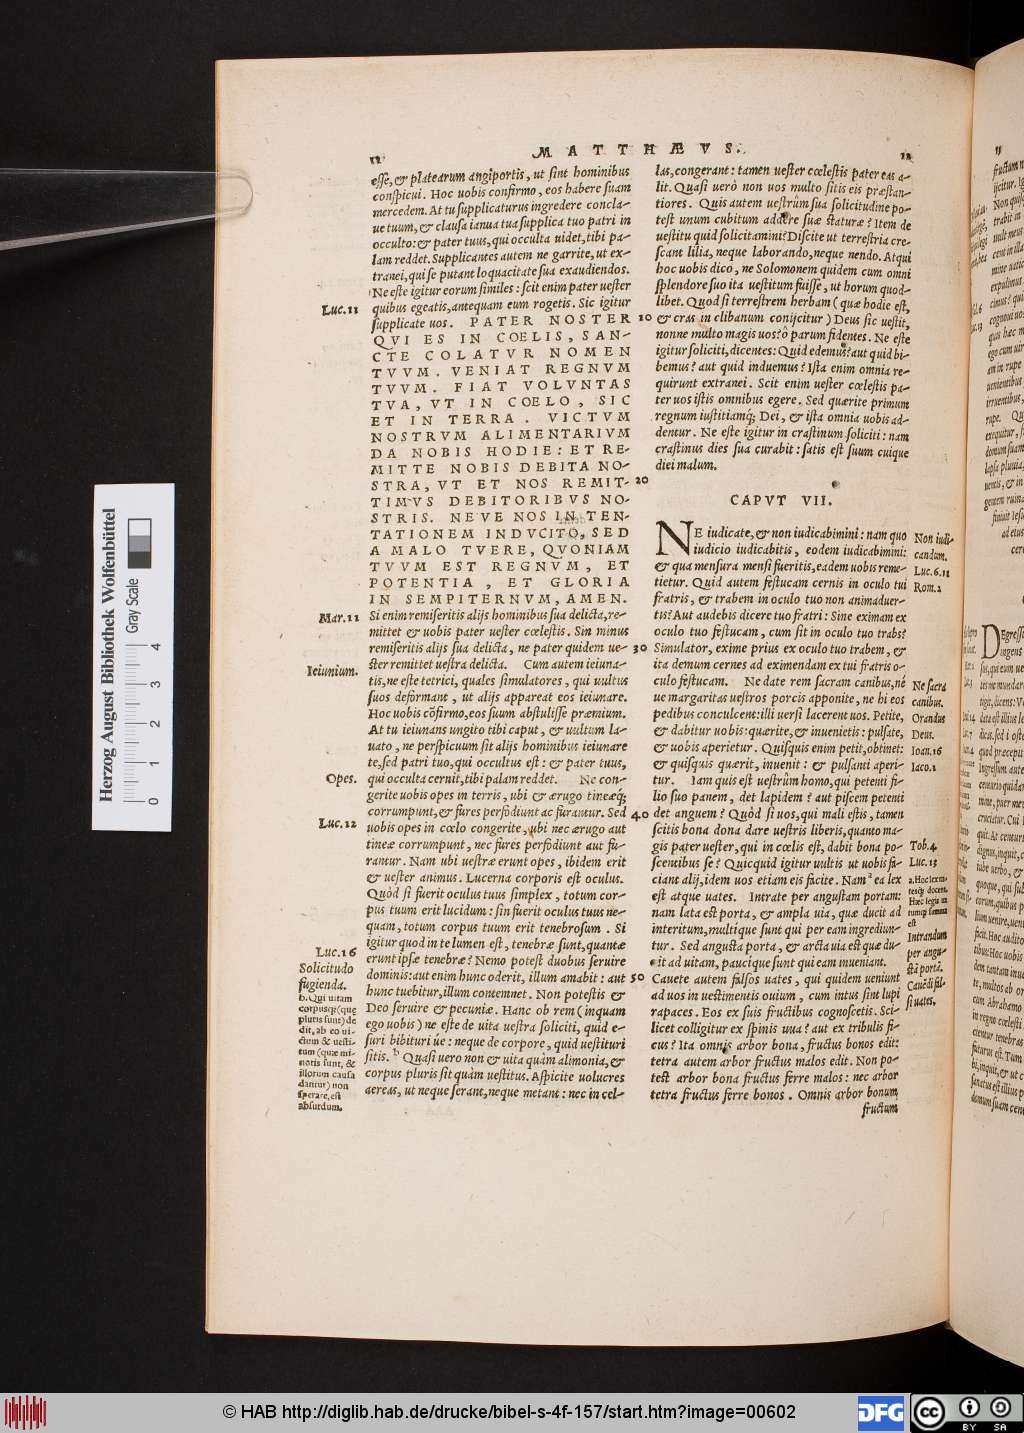 MATTHÆVS.
12
12
esse, & platearum angiportis, ut sint hominibus
conspicui. Hoc uobis confirmo, eos habere suam
mercedem. At tu supplicaturus ingredere concla-
ue tuum, & clausa ianua tua supplica tuo patri in
occulto: & pater tuus, qui occulta uidet, tibi pa-
lam reddet. Supplicantes autem ne garrite, ut ex-
tranei, qui se putant loquacitate sua exaudiendos.
Ne este igitur eorum similes: scit enim pater uester
quibus egeatis, antequam eum rogetis. Sic igitur
supplicate uos. PATER NOSTER
QVI ES IN COELIS, SAN-
CTE COLATVR NOMEN
TVVM. VENIAT REGNVM
TVVM. FIAT VOLVNTAS
TVA, VT IN COELO, SIC
ET IN TERRA. VICTVM
NOSTRVM ALIMENTARIVM
DA NOBIS HODIE: ET RE-
MITTE NOBIS DEBITA NO-
STRA, VT ET NOS REMIT-
TIMVS DEBITORIBVS NO-
STRIS. NEVE NOS IN TEN-
TATIONEM INDVCITO, SED
A MALO TVERE, QVONIAM
TVVM EST REGNVM, ET
POTENTIA, ET GLORIA
IN SEMPITERNVM, AMEN.
Si enim remiseritis alijs hominibus sua delicta, re-
mittet & uobis pater uester cœlestis. Sin minus
remiseritis alijs sua delicta, ne pater quidem ue-
ster remittet uestra delicta. Cum autem ieiuna-
tis, ne este tetrici, quales simulatores, qui uultus
suos deformant, ut alijs appareat eos ieiunare.
Hoc uobis cõfirmo, eos suum abstulisse præmium.
At tu ieiunans ungito tibi caput, & uultum la-
uato, ne perspicuum sit alijs hominibus ieiunare
te, sed patri tuo, qui occultus est: & pater tuus,
qui occulta cernit, tibi palam reddet. Ne con-
gerite uobis opes in terris, ubi & ærugo tineæq;
corrumpunt, & fures perfodiunt ac furantur. Sed
uobis opes in cœlo congerite, ubi nec ærugo aut
tineæ corrumpunt, nec fures perfodiunt aut fu-
rantur. Nam ubi uestræ erunt opes, ibidem erit
& uester animus. Lucerna corporis est oculus.
Quòd si fuerit oculus tuus simplex, totum cor-
pus tuum erit lucidum: sin fuerit oculus tuus ne-
quam, totum corpus tuum erit tenebrosum. Si
igitur quod in te lumen est, tenebræ sunt, quantæ
erunt ipsæ tenebræ? Nemo potest duobus seruire
dominis: aut enim hunc oderit, illum amabit: aut
hunc tuebitur, illum contemnet. Non potestis &
Deo seruire & pecuniæ. Hanc ob rem (inquam
ego uobis) ne este de uita uestra soliciti, quid e-
suri bibituri ue: neque de corpore, quid uestituri
sitis. b Quasi uero non & uita quàm alimonia, &
corpus pluris sit quàm uestitus. Aspicite uolucres
aereas, ut neque serant, neque metant: nec in cel-
Luc.11
Mar.11
Ieiunium.
Opes.
Luc.12
Luc.16
Solicitudo
fugienda.
b. Qui uitam
corpusq; (quę
pluris sunt) de
dit, ab eo ui-
ctum & uesti-
tum (quæ mi-
noris sunt, &
illorum causa
dantur) non
sperare, est
absurdum.
10
20
30
40
50
las, congerant: tamen uester cœlestis pater eas a-
lit. Quasi uerò non uos multo sitis eis præstan-
tiores. Quis autem uestrûm sua solicitudine po-
test unum cubitum addere suæ staturæ? Item de
uestitu quid solicitamini? Discite ut terrestria cre-
scant lilia, neque laborando, neque nendo. Atqui
hoc uobis dico, ne Solomonem quidem cum omni
splendore suo ita uestitum fuisse, ut horum quod-
libet. Quod si terrestrem herbam (quæ hodie est,
& cras in clibanum conijcitur) Deus sic uestit,
nonne multo magis uos? ô parum fidentes. Ne este
igitur soliciti, dicentes: Quid edemus? aut quid bi-
bemus? aut quid induemus? Ista enim omnia re-
quirunt extranei. Scit enim uester cœlestis pa-
ter uos istis omnibus egere. Sed quærite primum
regnum iustitiamq; Dei, & ista omnia uobis ad-
dentur. Ne este igitur in crastinum soliciti: nam
crastinus dies sua curabit: satis est suum cuique
diei malum.
CAPVT VII.
NE iudicate, & non iudicabimini: nam quo
iudicio iudicabitis, eodem iudicabimini:
& qua mensura mensi fueritis, eadem uobis reme-
tietur. Quid autem festucam cernis in oculo tui
fratris, & trabem in oculo tuo non animaduer-
tis? Aut audebis dicere tuo fratri: Sine eximam ex
oculo tuo festucam, cum sit in oculo tuo trabs?
Simulator, exime prius ex oculo tuo trabem, &
ita demum cernes ad eximendam ex tui fratris o-
culo festucam. Ne date rem sacram canibus, né
ue margaritas uestros porcis apponite, ne hi eos
pedibus conculcent: illi uersi lacerent uos. Petite,
& dabitur uobis: quærite, & inuenietis: pulsate,
& uobis aperietur. Quisquis enim petit, obtinet:
& quisquis quærit, inuenit: & pulsanti aperi-
tur. Iam quis est uestrûm homo, qui petenti fi-
lio suo panem, det lapidem? aut piscem petenti
det anguem? Quòd si uos, qui mali estis, tamen
scitis bona dona dare uestris liberis, quanto ma-
gis pater uester, qui in cœlis est, dabit bona po-
scentibus se? Quicquid igitur uultis ut uobis fa-
ciant alij, idem uos etiam eis facite. Nam a ea lex
est atque uates. Intrate per angustam portam:
nam lata est porta, & ampla uia, quæ ducit ad
interitum, multique sunt qui per eam ingrediun-
tur. Sed angusta porta, & arcta uia est quæ du-
cit ad uitam, paucique sunt qui eam inueniant.
Cauete autem falsos uates, qui quidem ueniunt
ad uos in uestimentis ouium, cum intus sint lupi
rapaces. Eos ex suis fructibus cognoscetis. Sci-
licet colligitur ex spinis uua? aut ex tribulis fi-
cus? Ita omnis arbor bona, fructus bonos edit:
tetra autem arbor fructus malos edit. Non po-
test arbor bona fructus ferre malos: nec arbor
tetra fructus ferre bonos. Omnis arbor bonum
fructum
Non iudi-
candum.
Luc.6.11
Rom.2
Ne sacra
canibus.
Orandus
Deus.
Ioan.16
Iaco.1
Tob.4
Luc.13
a. Hoc lex ua-
tesq; docent.
Hæc legis ua
tumq; summa
est
Intrandum
per angu-
stã portã.
Cauẽdi fal-
si uates.
Herzog August Bibliothek Wolfenbüttel
Gray Scale
0 1 2 3 4
© HAB http://diglib.hab.de/drucke/bibel-s-4f-157/start.htm?image=00602
DFG
cc
BY SA